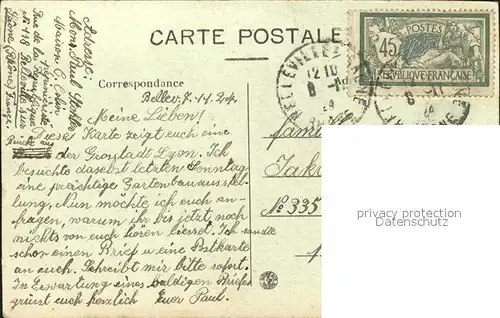 CARTE POSTALE
POSTES
45
REPUBLIQUE FRANÇAISE
BELLEVILLE
12 10
8 -11
Correspondance
Bellev. 8.11.24.
Meine Lieben!
Diese Karte zeigt euch eine
Brücke aus
der Großstadt Lyon. Ich
besuchte daselbst letzten Sonntag
eine prächtige Gartenbauausstel-
lung. Nun möchte ich euch an-
fragen, warum ihr bis jetzt noch
nichts von euch hören liesset. Ich sandte
schon einen Brief u. eine Postkarte
an euch. Schreibt mir bitte sofort.
In Erwartung eines baldigen Briefes
grüsst euch herzlich Euer Paul.
Adresse:
Mons. Paul
Maison C.
pépinières
Rue de la République
No 118 Belleville sur
Saône (Rhône) France.
Fami
Jak
No 335
privacy protection
Datenschutz